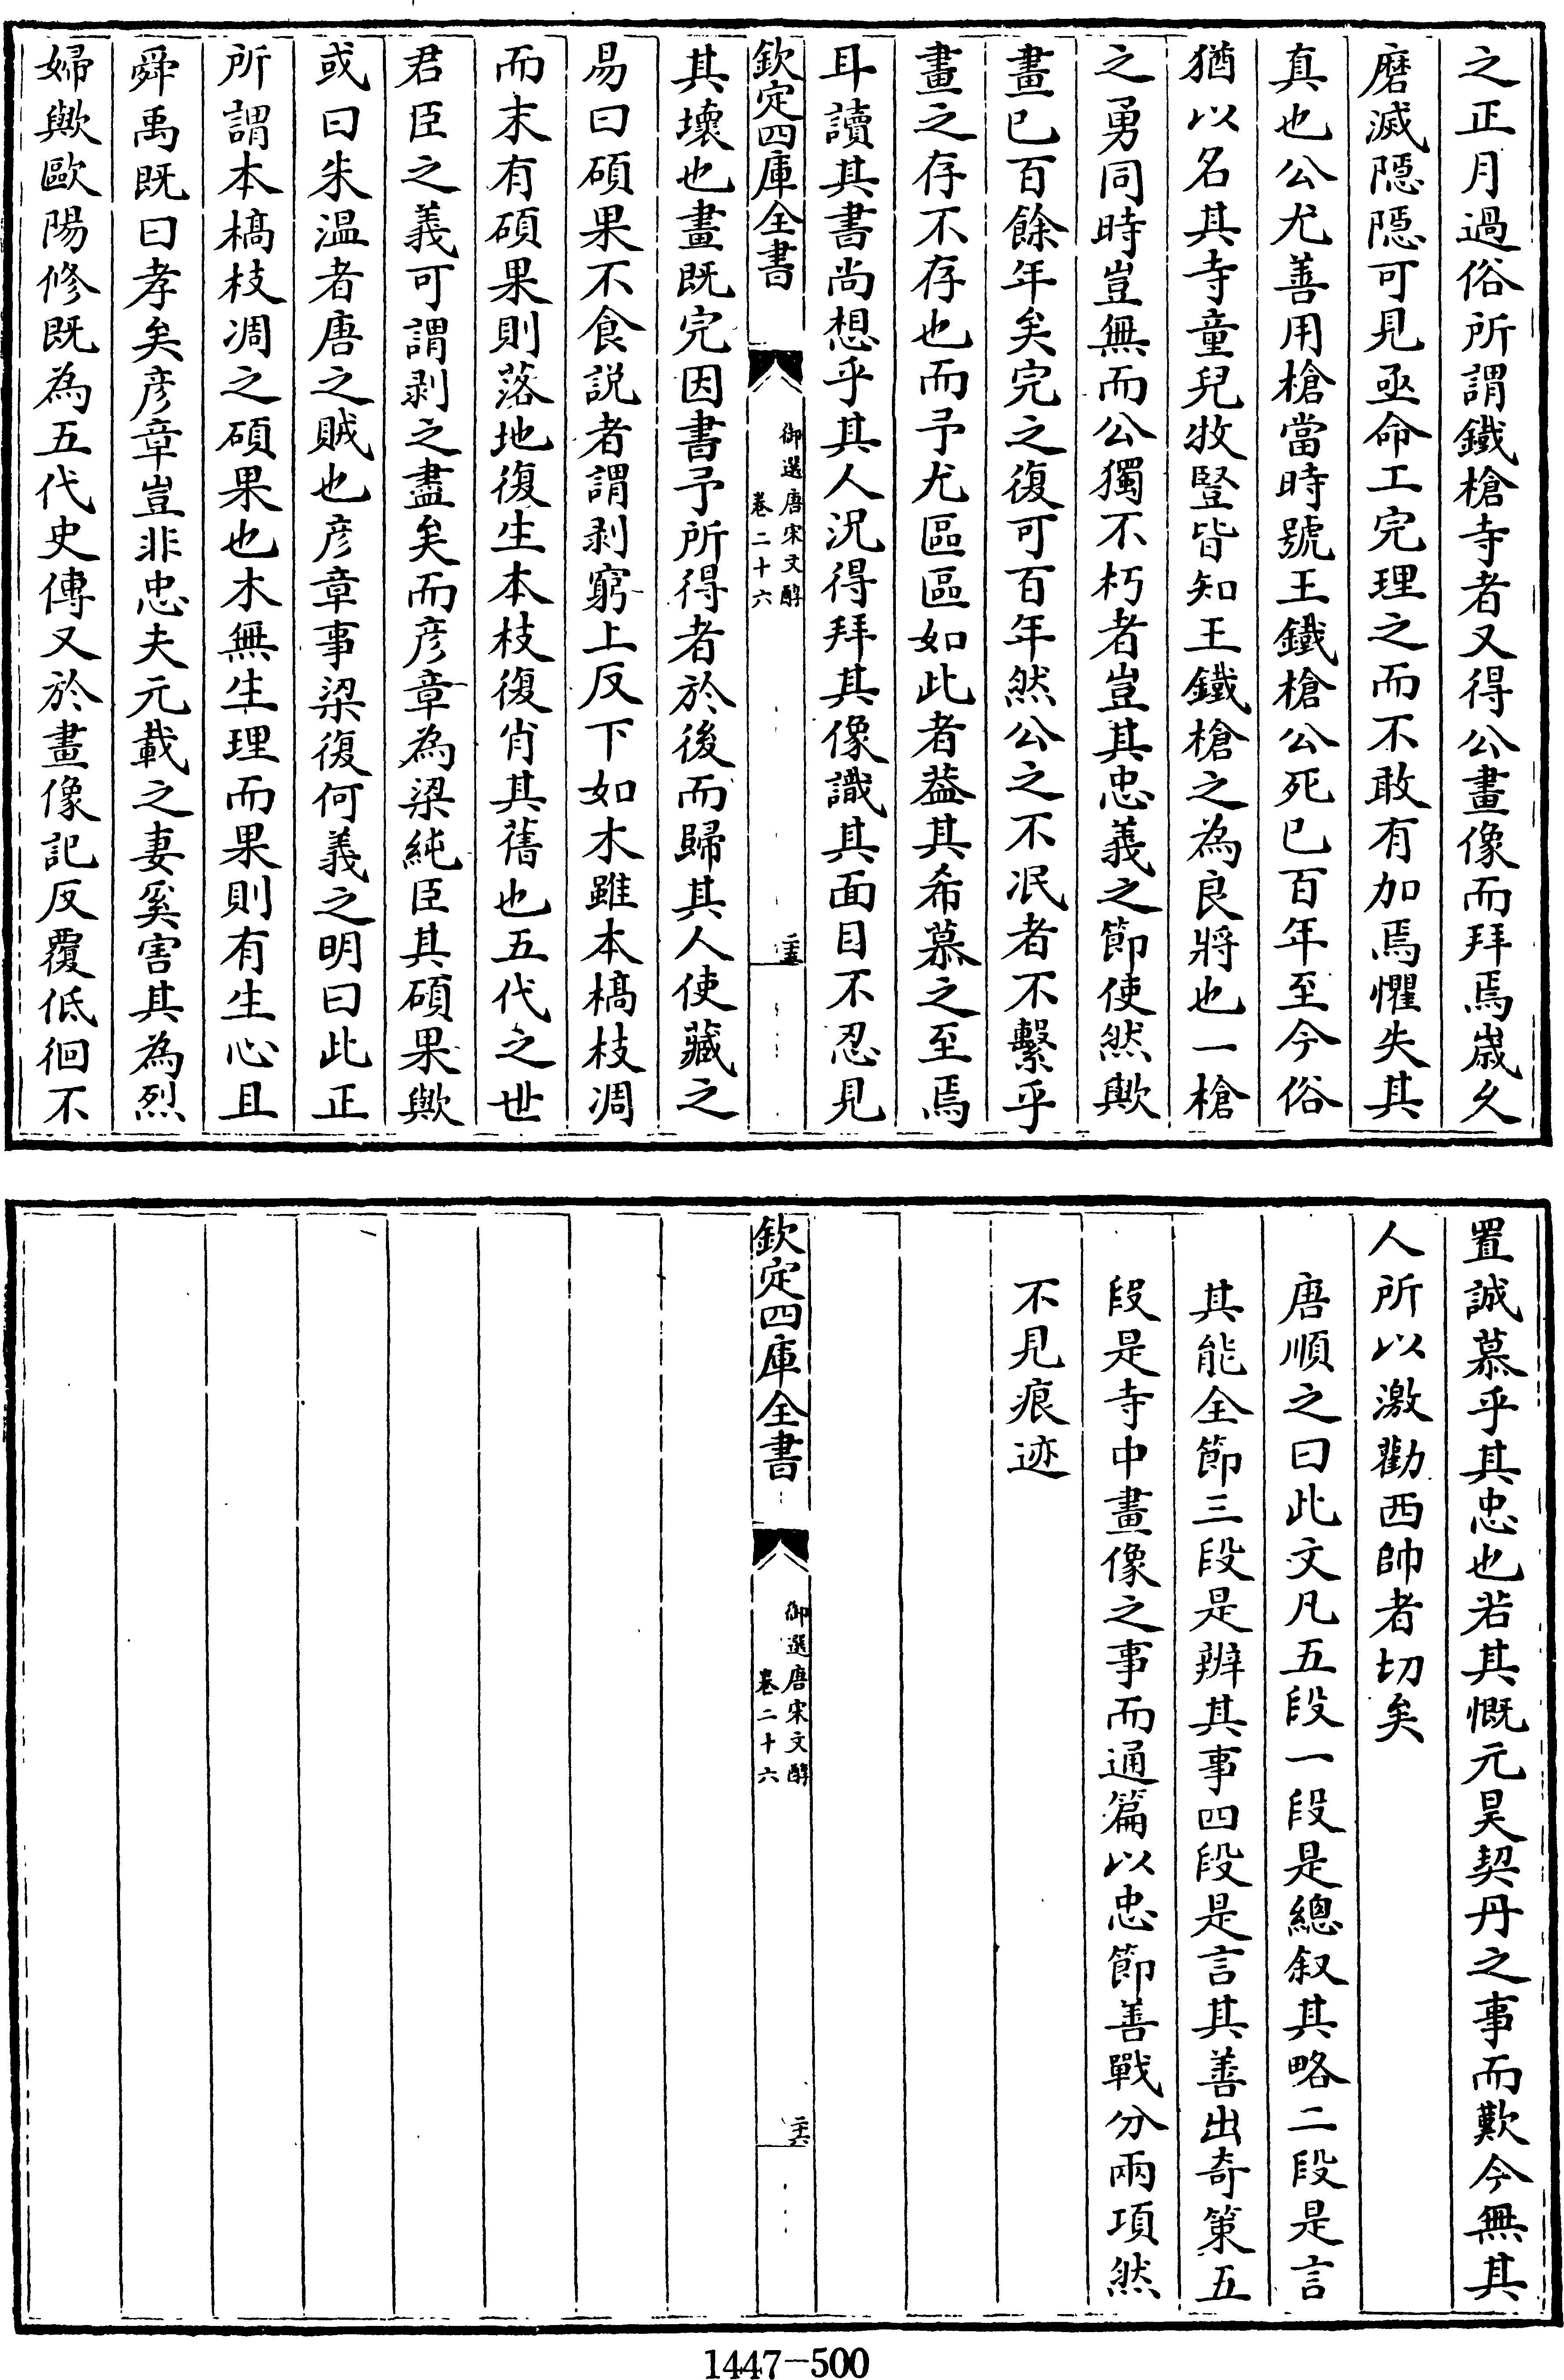 之正月過俗所謂鐵槍寺者又得公畫像而拜焉歲久
磨滅隱隱可見亟命工完理之而不敢有加焉懼失其
真也公尤善用槍當時號王鐵槍公死已百年至今俗
猶以名其寺童兒牧豎皆知王鐵槍之為良將也一槍
之勇同時豈無而公獨不朽者豈其忠義之節使然歟
畫已百餘年矣完之復可百年然公之不泯者不繫乎
畫之存不存也而予尤區區如此者葢其希慕之至焉
耳讀其書尚想乎其人況得拜其像識其面目不忍見
欽定四庫全書
御選唐宋文醇
卷二十六
二十五
其壞也畫既完因書予所得者於後而歸其人使藏之
易曰碩果不食説者謂剥窮上反下如木雖本槁枝凋
而末有碩果則落地復生本枝復肖其舊也五代之世
君臣之義可謂剥之盡矣而彥章為梁純臣其碩果歟
或曰朱温者唐之賊也彥章事梁復何義之明曰此正
所謂本槁枝凋之碩果也木無生理而果則有生心且
舜禹既曰孝矣彥章豈非忠夫元載之妻奚害其為烈
婦歟歐陽修既為五代史傳又於畫像記反覆低徊不
置誠慕乎其忠也若其慨元昊契丹之事而歎今無其
人所以激勸西帥者切矣
唐順之曰此文凡五段一段是總叙其略二段是言
其能全節三段是辨其事四段是言其善出奇策五
段是寺中畫像之事而通篇以忠節善戰分兩項然
不見痕迹
欽定四庫全書
御選唐宋文醇
卷二十六
二十六
1447-500